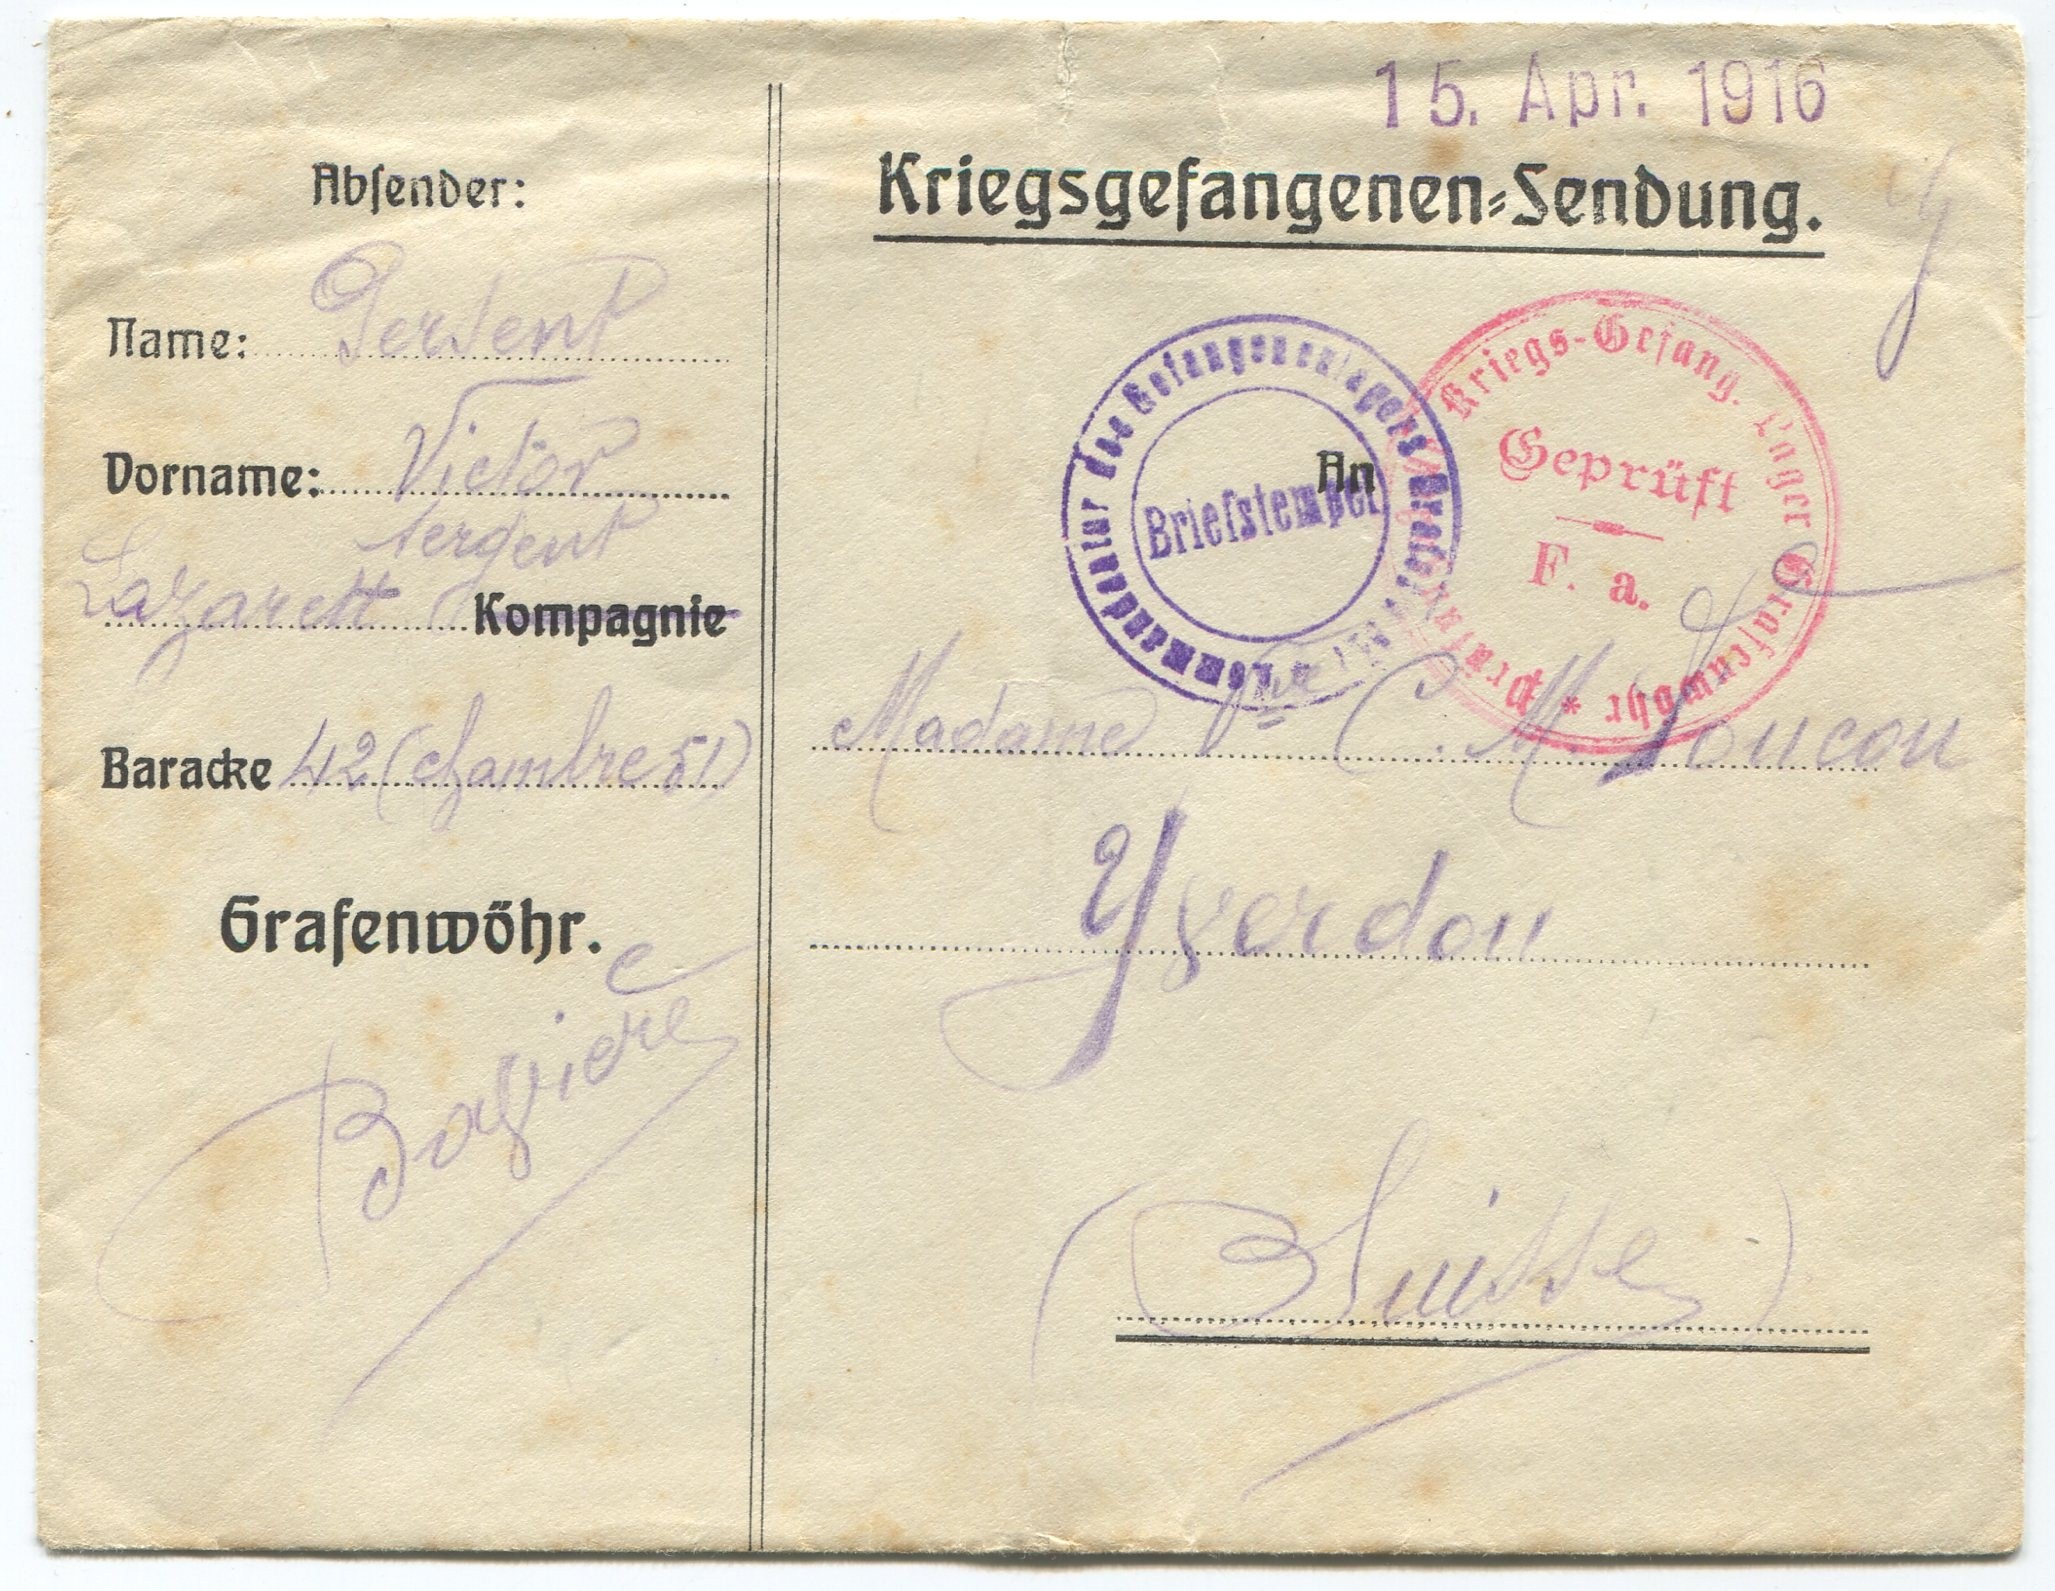 15. Apr. 1916
Kriegsgefangenen-Sendung.
Absender:
Name:
Vorname: Victor
sergent
Lazarett Kompagnie
Baracke 42 (chambre 51)
Grafenwöhr.
Bavière
Kommandantur des Gefangenenlagers
Briefstempel
Kriegs-Gefang. Lager Grafenwöhr *
Geprüft
F. a.
An
Madame Vve C. M.
Yverdon
(Suisse)